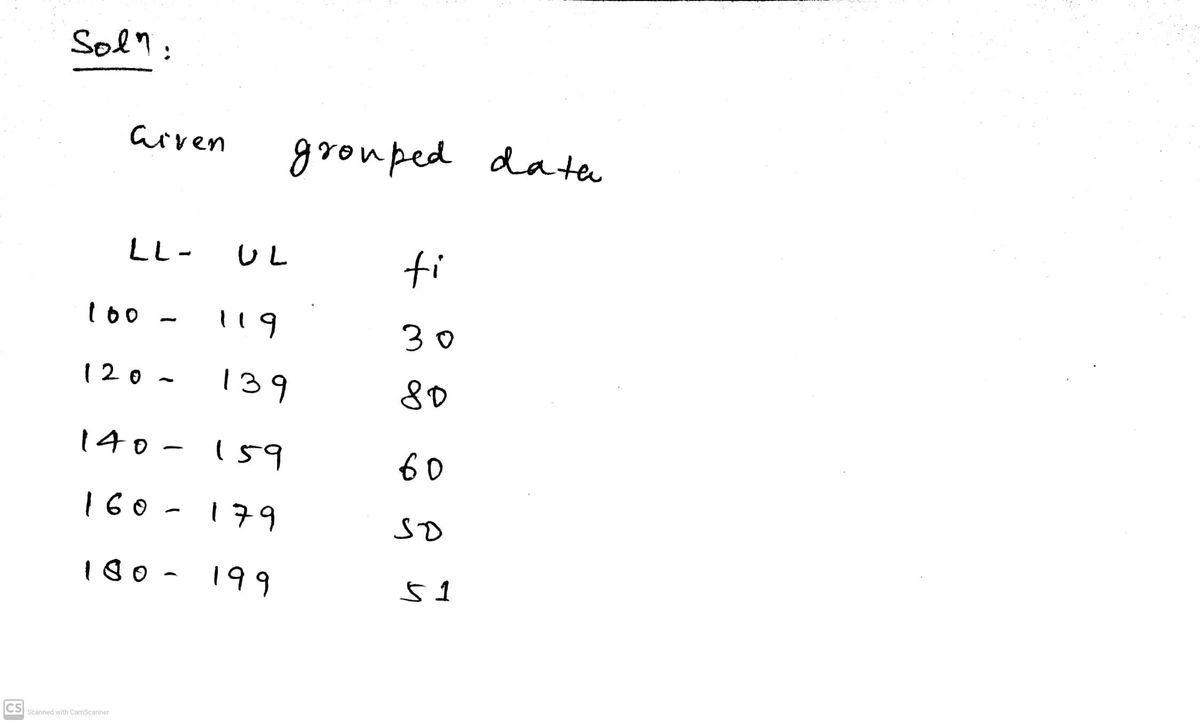 Soln:
Given grouped data
LL - UL fi
100 - 119 30
120 - 139 80
140 - 159 60
160 - 179 50
180 - 199 51
CS Scanned with CamScanner